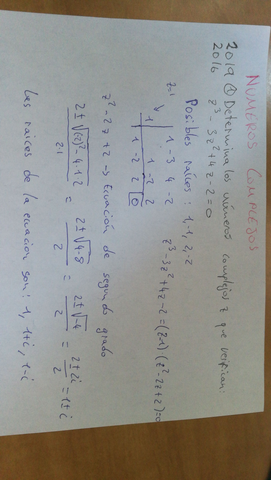 NUMEROS COMPLEJOS
2019 ① Determina los números complejos z que verifican
2016 z³ - 3z² + 4z - 2 = 0
Posibles raíces: 1, -1, 2, -2
z=1
1 -3 4 -2
1 1 -2 2
1 -2 2 0
z³ - 3z² + 4z - 2 = (z-1) (z² - 2z + 2) = 0
z² - 2z + 2 → Ecuación de segundo grado
2 ± √(2)² - 4·1·2 / 2·1 = 2 ± √4-8 / 2 = 2 ± √-4 / 2 = 2 ± 2i / 2 = 1 ± i
Las raices de la ecuacion son: 1, 1+i, 1-i